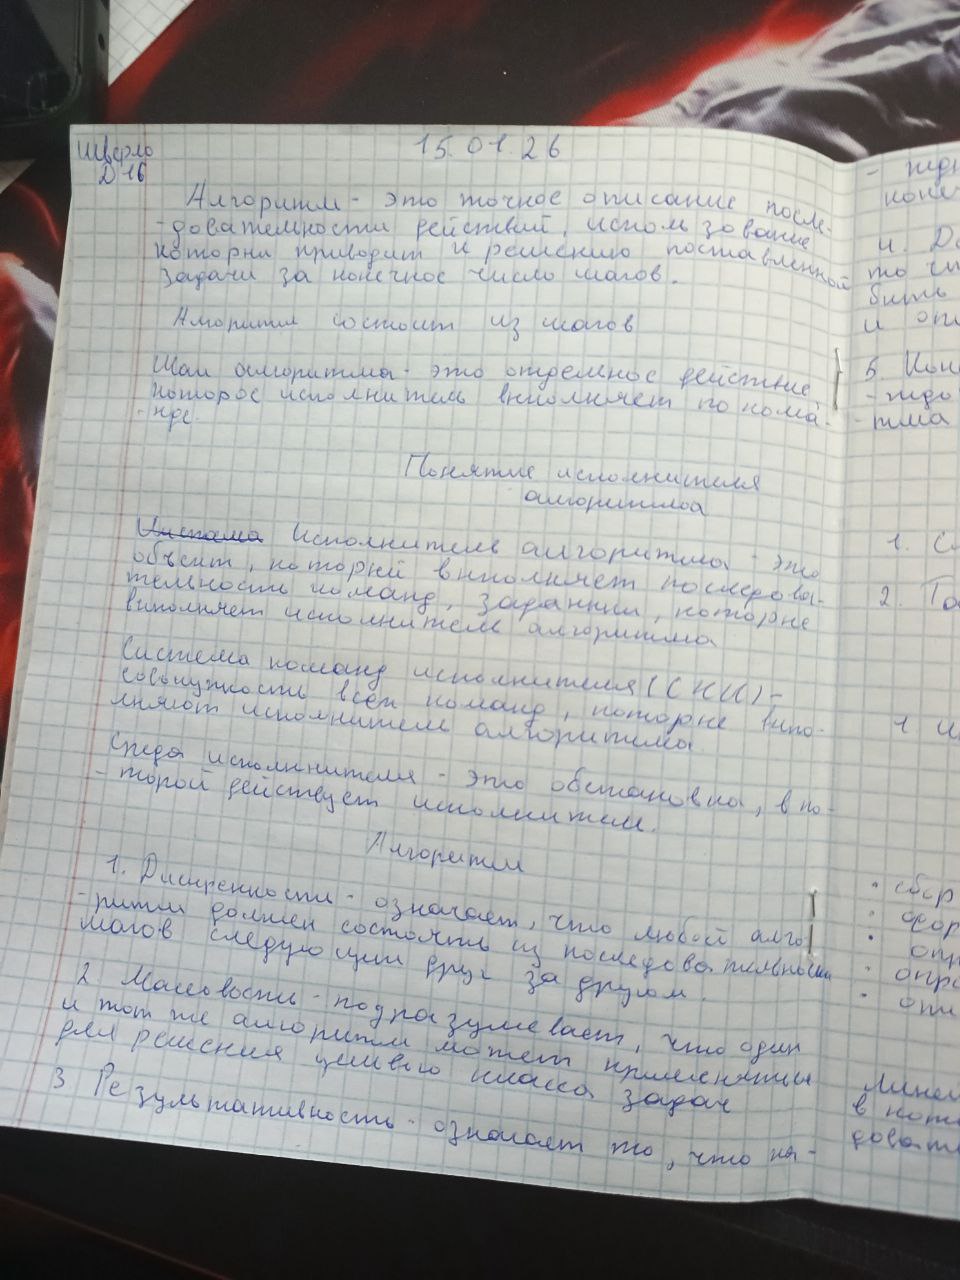 Д16
15.01.26
Алгоритм - это точное описание после-
-довательности действий, использование
которых приводит к решению поставленной
задачи за конечное число шагов.
Алгоритм состоит из шагов
Шаг алгоритма - это отдельное действие,
которое исполнитель выполняет по кома-
-нде.
Понятие исполнителя
алгоритма
Исполнитель алгоритма - это
объект, который выполняет последова-
тельность команд, которые
выполняет исполнитель алгоритма
Система команд исполнителя (СКИ) -
совокупность всех команд, которые выпо-
лняют исполнитель алгоритма.
Среда исполнителя - это обстановка, в ко-
-торой действует исполнитель.
Алгоритм
1. - означает, что любой алго-
-ритм должен состоять из последовательности
шагов следующих друг за другом.
2 Массовость - подразумевает, что один
и тот же алгоритм может применяться
для решения целого класса задач
3 Результативность - означает то, что
- 
4. 
то
и
5.
-тма
1.
2.
1.
в